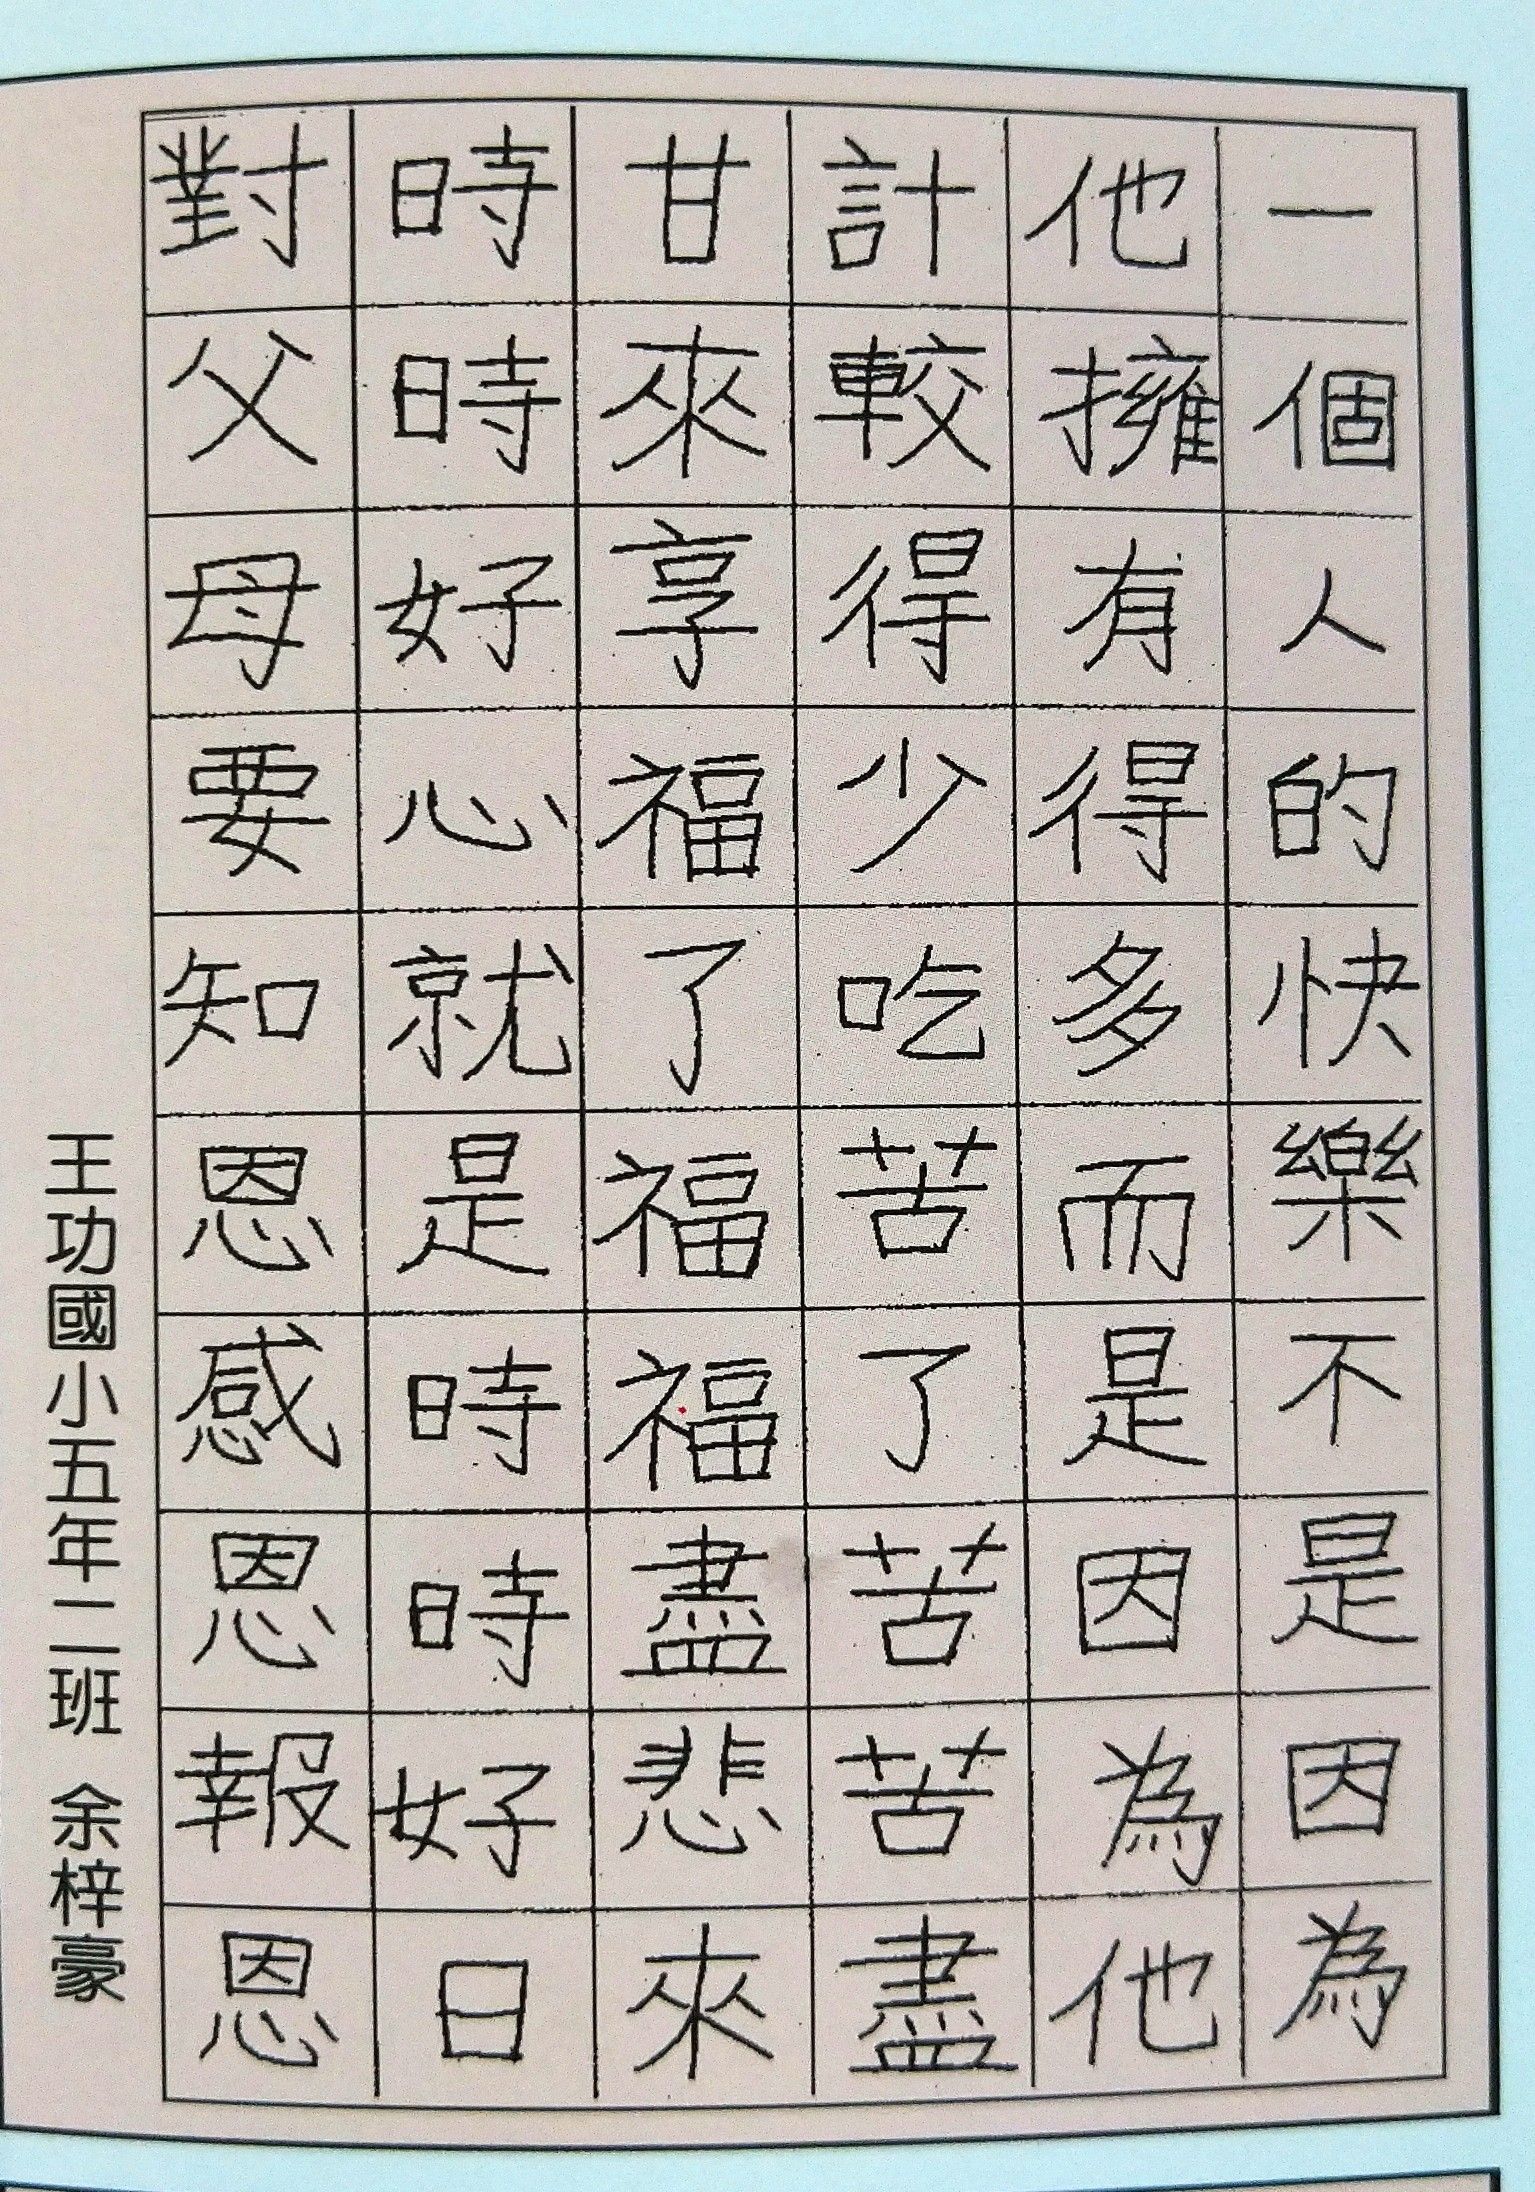 一個人的快樂不是因為
他擁有得多而是因為他
計較得少吃苦了苦苦盡
甘來享福了福福盡悲來
時時好心就是時時好日
對父母要知恩感恩報恩
王功國小五年二班 余梓豪